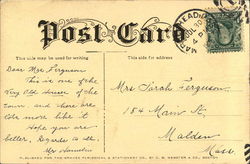 Post Card
This side may be used for writing
This side for address
Dear Mrs. Ferguson
This is one of the
Very Old Houses of the
Town. and there are
lots more like it
Hope you are
better. Regards to all.
Mrs
Mrs Sarah Ferguson
154 Main St,
Malden
Mass.